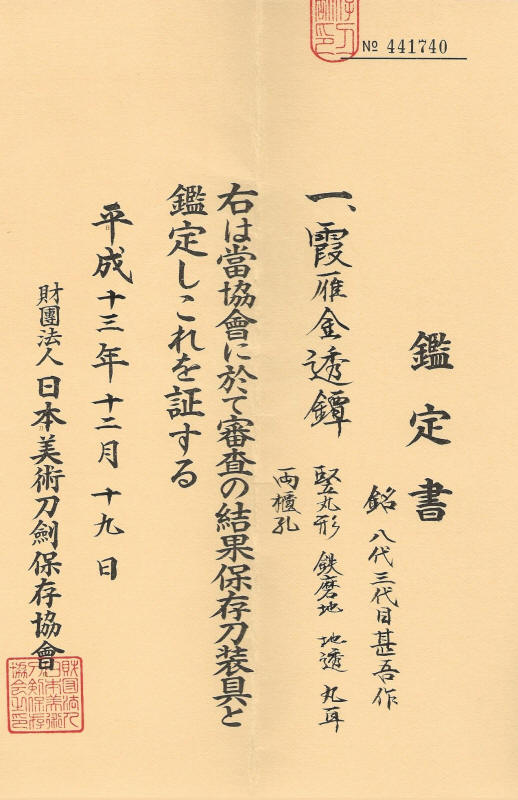 № 441740
鑑定書
銘 八代三代目甚吾作
一、霞雁金透鐔
竪丸形 鉄磨地 地透 丸耳
両櫃孔
右は當協會に於て審査の結果保存刀装具と
鑑定しこれを証する
平成十三年十二月十九日
財團法人日本美術刀劍保存協會